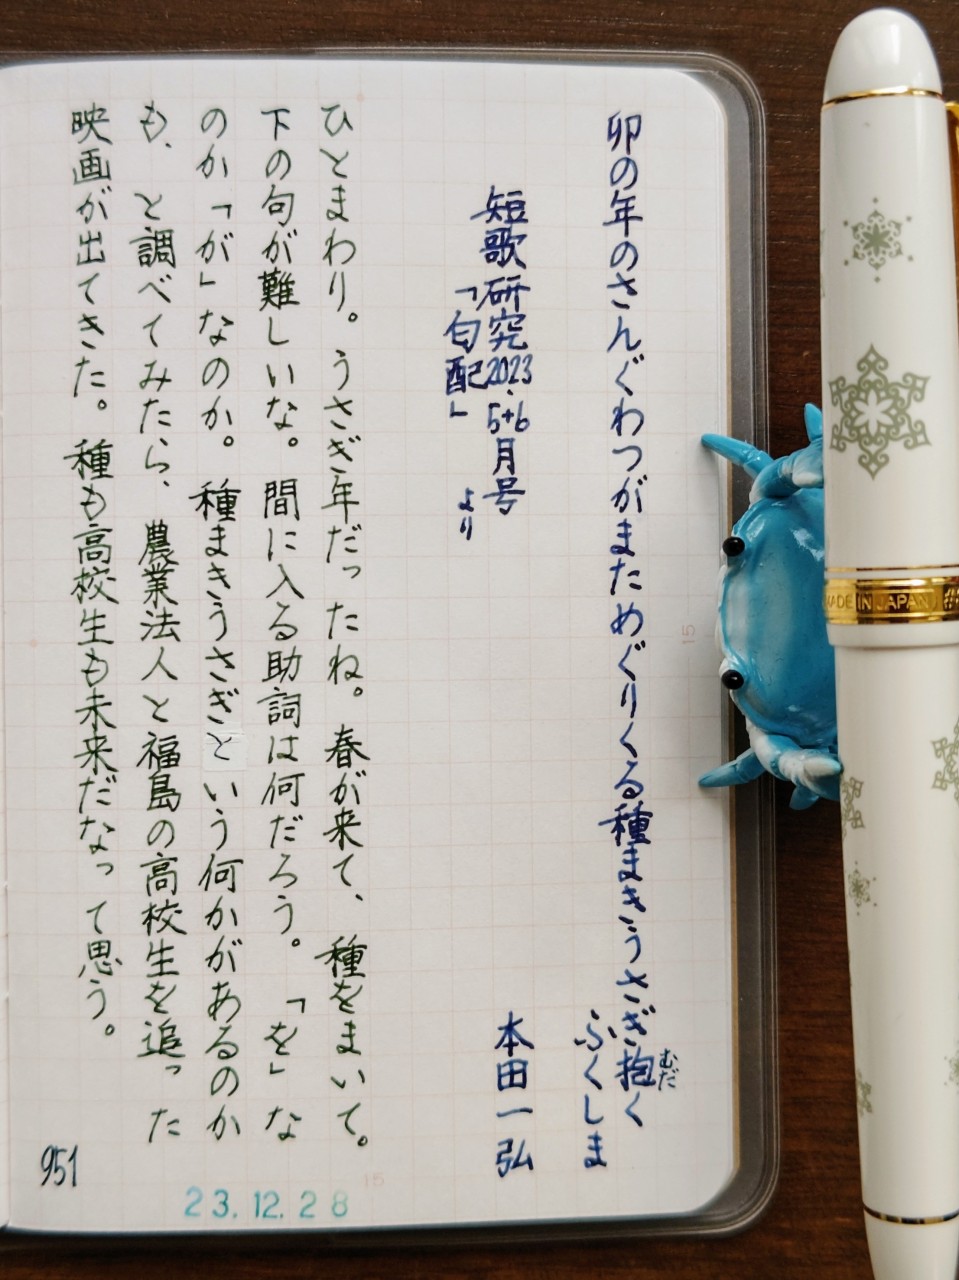 卯の年のさんぐわつがまためぐりくる種まきうさぎ抱く
むだ
ふくしま
本田一弘
短歌研究2023.5+6月号
「匂配」より
ひとまわり。うさぎ年だったね。春が来て、種をまいて。
下の句が難しいな。間に入る助詞は何だろう。「を」な
のか「が」なのか。種まきうさぎという何かがあるのか
も、と調べてみたら、農業法人と福島の高校生を追った
映画が出てきた。種も高校生も未来だなって思う。
951
23.12.28
15
15
MADE IN JAPAN